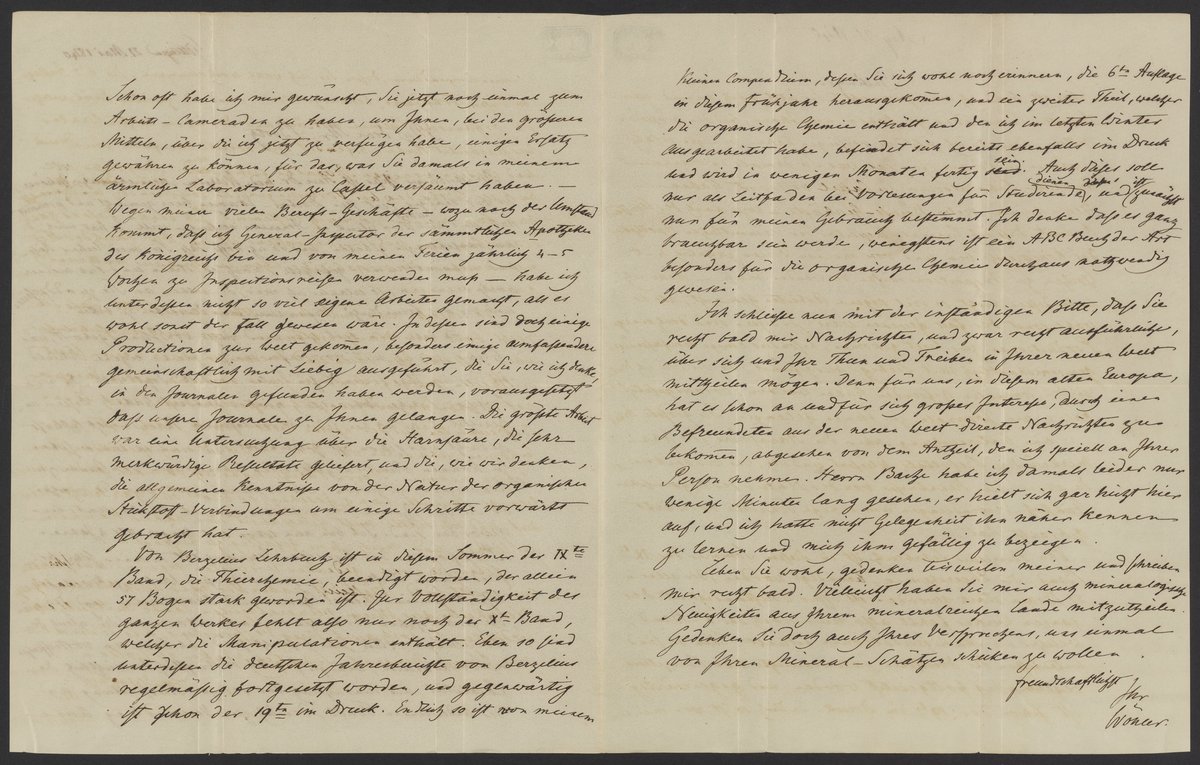 Schon oft habe ich mir gewünscht, Sie jetzt noch einmal zum
Arbeits-Cameraden zu haben, um Ihnen, bei den größeren
Mitteln, über die ich jetzt zu verfügen habe, einigen Ersatz
gewähren zu können, für das, was Sie damals in meinem
ärmlichen Laboratorium zu Cassel versäumt haben. —
Wegen meiner vielen Berufs-Geschäfte — wozu noch der Umstand
kommt, daß ich General-Inspector der sämmtlichen Apotheken
des Königreichs bin und von meinen Ferien jährlich 4-5
Wochen zu Inspectionsreisen verwenden muß — habe ich
unterdessen nicht so viel eigene Arbeiten gemacht, als es
wohl sonst der Fall gewesen wäre. Indessen sind doch einige
Productionen zur Welt gekomen, besonders einige umfassendere
gemeinschaftlich mit Liebig ausgeführt, die Sie, wie ich denke,
in den Journalen gefunden haben werden, vorausgesetzt
daß unsre Journale zu Ihnen gelangen. Die größte Arbeit
war eine Untersuchung über die Harnsäure, die sehr
merkwürdige Resultate geliefert, und die, wie wir denken,
die allgemeinen Kenntnisse von der Natur der organischen
Stickstoff-Verbindungen um einige Schritte vorwärts
gebracht hat.
Von Berzelius Lehrbuch ist in diesem Sommer der IXte
Band, die Thierchemie, beendigt worden, der allein
57 Bogen stark geworden ist. Zur Vollständigkeit des
ganzen Werkes fehlt also nur noch der Xte Band,
welcher die Manipulationen enthält. Eben so sind
unterdessen die deutschen Jahresberichte von Berzelius
regelmäßig fortgesetzt worden, und gegenwärtig
ist schon der 19te im Druck. Endlich so ist von meinem
kleinen Compendium, dessen Sie sich wohl noch erinnern, die 6te Auflage
in diesem Frühjahr herausgekomen, und ein zweiter Theil, welcher
die organische Chemie enthält und den ich im letzten Winter
ausgearbeitet habe, befindet sich bereits ebenfalls im Druck
und wird in wenigen Monaten fertig sein. Auch dieses soll
nur als Leitfaden bei Vorlesungen für Studirende dienen, und ist zunächst
nur für meinen Gebrauch bestimmt. Ich denke daß es ganz
brauchbar sein werde, wenigstens ist ein ABC Buch der Art
besonders für die organische Chemie durchaus nothwendig
gewesen.
Ich schließe nun mit der inständigen Bitte, daß Sie
recht bald mir Nachrichten, und zwar recht ausführliche,
über sich und Ihr Thun und Treiben in Ihrer neuen Welt
mittheilen mögen. Denn für uns, in diesem alten Europa,
hat es schon an und für sich großes Interesse, durch einen
Befreundeten aus der neuen Welt directe Nachrichten zu
bekomen, abgesehen von dem Antheil, den ich speciell an Ihrer
Person nehme. Herrn Bache habe ich damals leider nur
wenige Minuten lang gesehen, er hielt sich gar nicht hier
auf, und ich hatte nicht Gelegenheit ihn näher kennen
zu lernen und mich ihm gefällig zu bezeigen.
Leben Sie wohl, gedenken bisweilen meiner und schreiben
mir recht bald. Vielleicht haben Sie mir auch mineralogische
Neuigkeiten aus Ihrem mineralreichen Lande mitzutheilen.
Gedenken Sie doch auch Ihres Versprechens, uns einmal
von Ihren Mineral-Schätzen schicken zu wollen.
freundschaftlichst
Ihr
Wöhler.